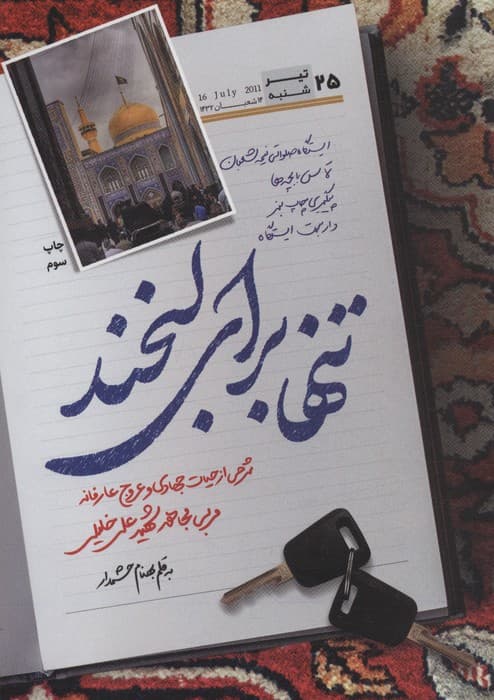 ۲۵ تیر
شنبه
16 July 2011
۱۴ شعبان ۱۴۳۲
ایستگاه صلواتی نیمه شعبان
تماس با بچه‌ها
پیگیری چاپ بنر
داربست ایستگاه
چاپ
سوم
تنها برای لبخند
شرحی از حیات جهادی و عروج عارفانه
مربی مجاهد شهید علی خلیلی
به قلم بهنام حشمدار